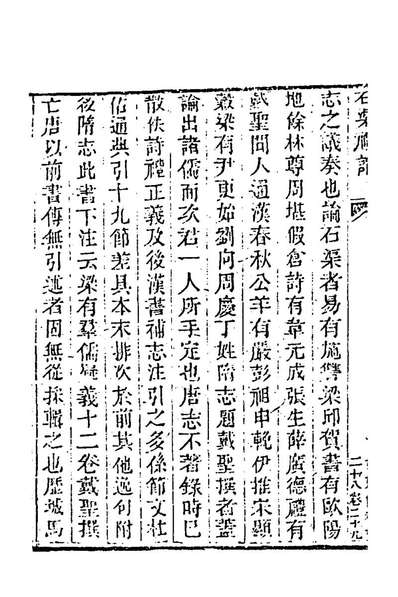 石渠禮論
志之議奏也論石渠者易有施讐梁邱賀書有歐陽
地餘林尊周堪假倉詩有韋元成張生薛廣德禮有
戴聖聞人通漢春秋公羊有嚴彭祖申輓伊推宋顯
穀梁有尹更始劉向周慶丁姓隋志題戴聖撰者蓋
論出諸儒而次君一人所手定也唐志不著錄時已
散佚詩禮正義及後漢書補志注引之多係節文杜
佑通典引十九節差具本末排次於前其他逸句附
後隋志此書下注云梁有羣儒疑義十二卷戴聖撰
亡唐以前書傳無引述者固無從採輯之也歷城馬